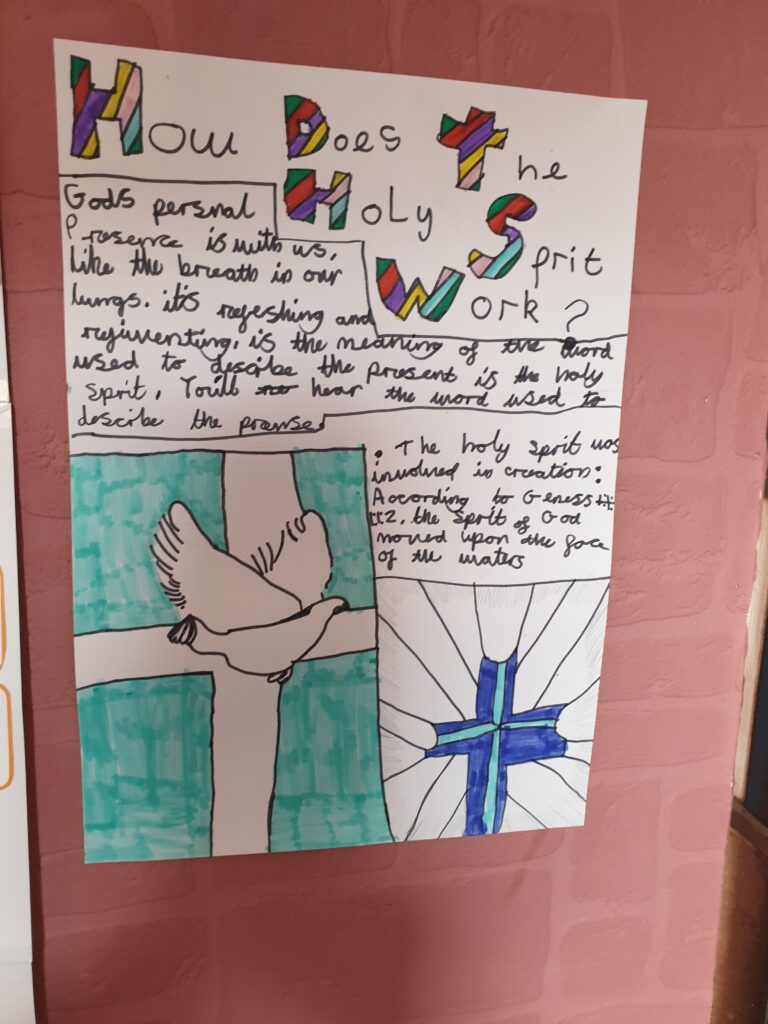 How Does The
Holy Sprit
Work?
Gods persnal
Presence is with us,
like the breath in our
lungs. it's refeshing and
rejuventing, is the meaning of the word
used to descibe the present is the holy
Sprit, You'll hear the word used to
describe the
. The holy Sprit was
involved in creation:
According to Geness
the Sprit of God
moved upon the face
of the waters